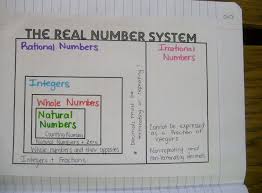 THE REAL NUMBER SYSTEM
Rational Numbers
Irrational Numbers
Integers
Whole Numbers
Natural
Numbers
Counting Numbers
Natural Numbers + Zero
Whole numbers and their opposites
Integers + Fractions
Decimals must be
terminating or repeating!
Cannot be expressed
as a fraction of
integers
Nonrepeating and
non-terminating decimals